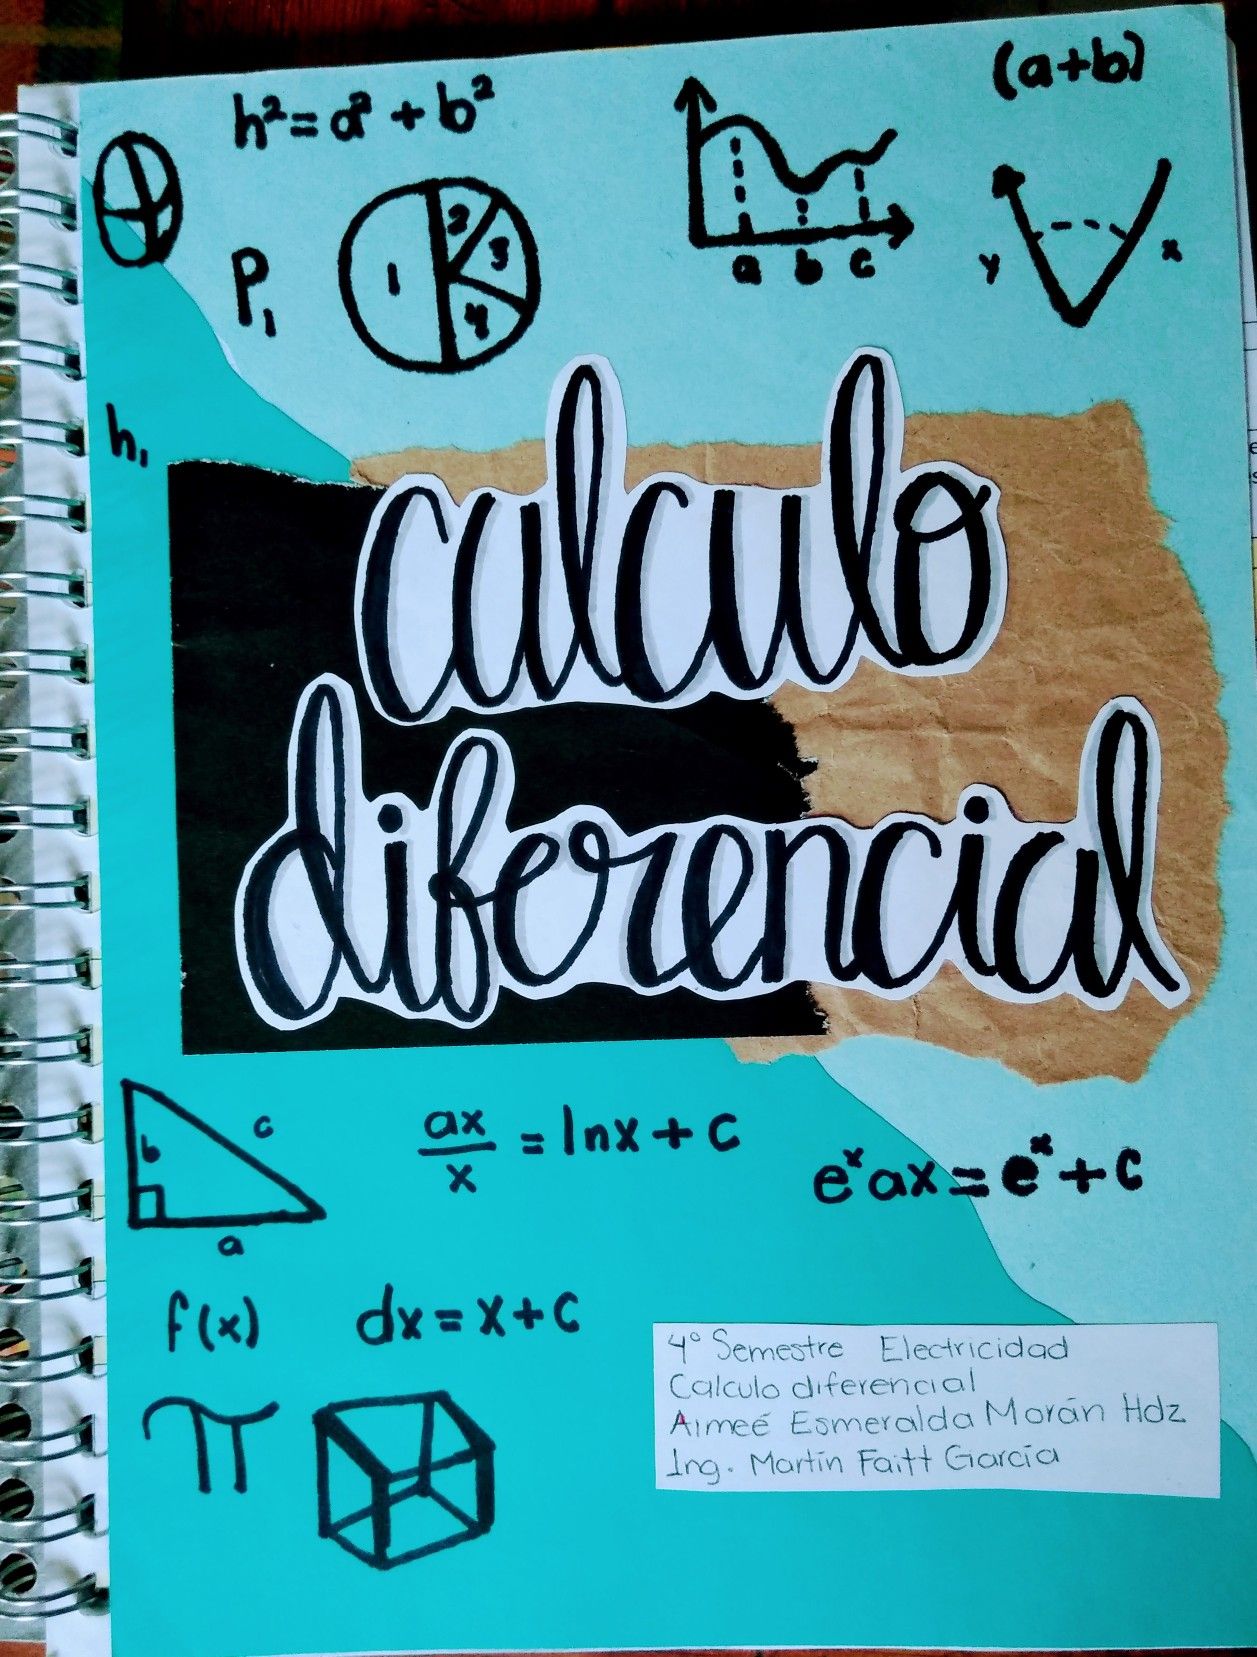 h²=a²+b²
(a+b)
1 2 3 4
P₁
a b c
y x
h₁
calculo
diferencial
b c
a
ax/x = lnx+c
eˣax=eˣ+c
f(x) dx=x+c
π
4° Semestre Electricidad
Calculo diferencial
Aimeé Esmeralda Morán Hdz
Ing. Martín Faitt García